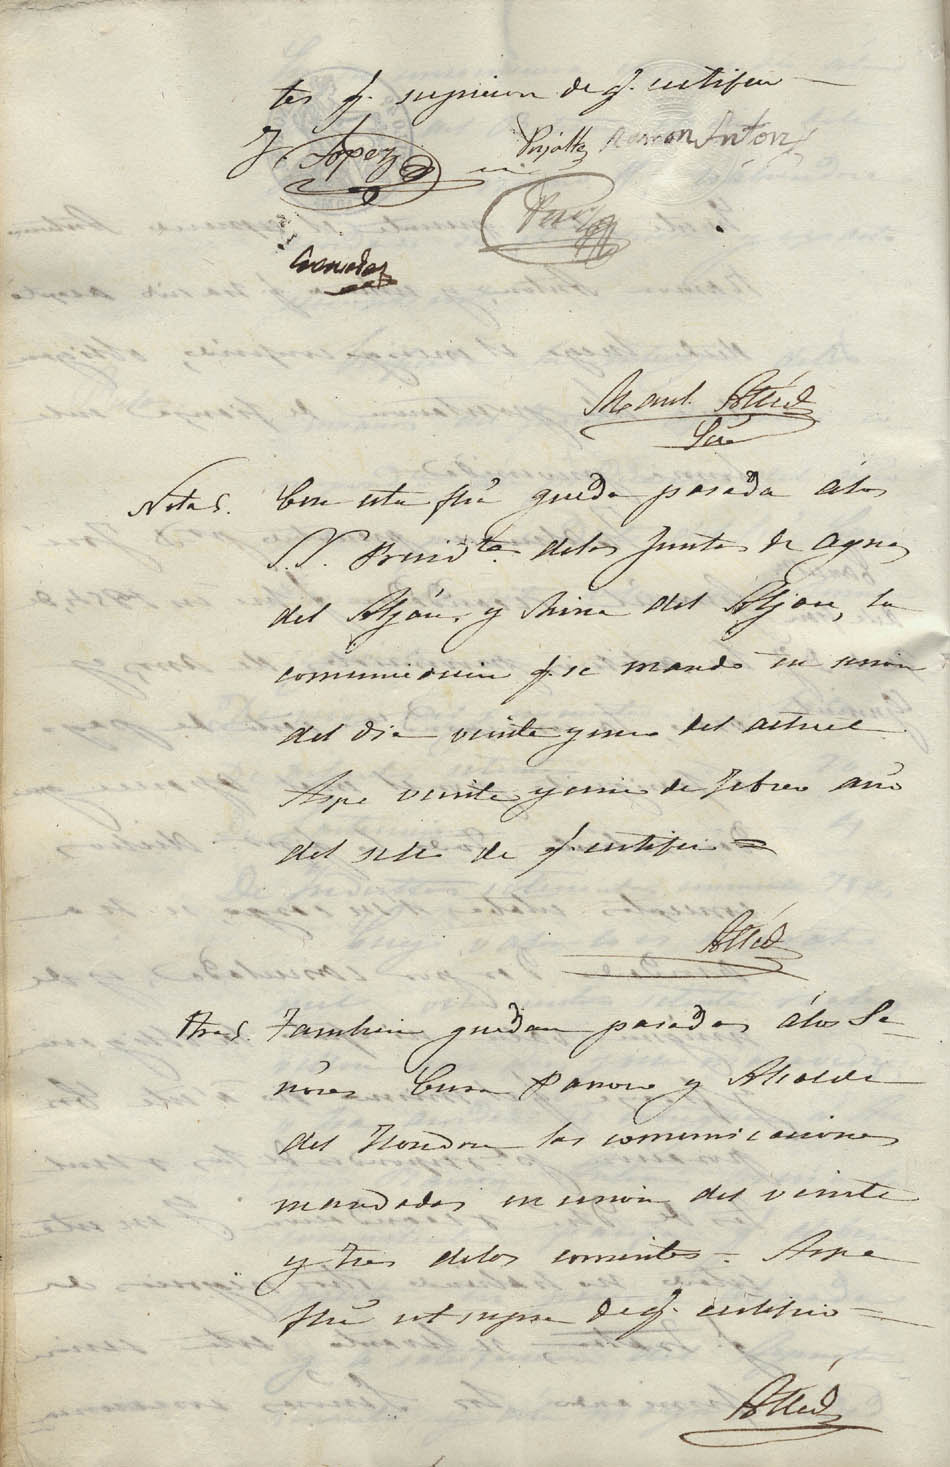 tes q.e supieron de q.e certifico
J. Lopez Pujalte Ramon Anton
Gonzalez
Manl. Alted
Srio
Nota S. Con esta fha queda pasada á los
S.S. Presidtes. de las Juntas de aguas
del Aljáu, y Mina del Aljau, la
comunicacion q.e se mandó en sesion
del dia veinte y uno del actual.
Aspe veinte y cinco de Febrero año
del sello de q.e certifico =
Alted
Otra S. Tambien quedan pasadas á los Se-
ñores Cura Parroco y Alcalde
del Hondon las comunicaciones
mandadas en sesion del veinte
y tres de los corrientes = Aspe
fha ut supra de q.e certifico =
Alted